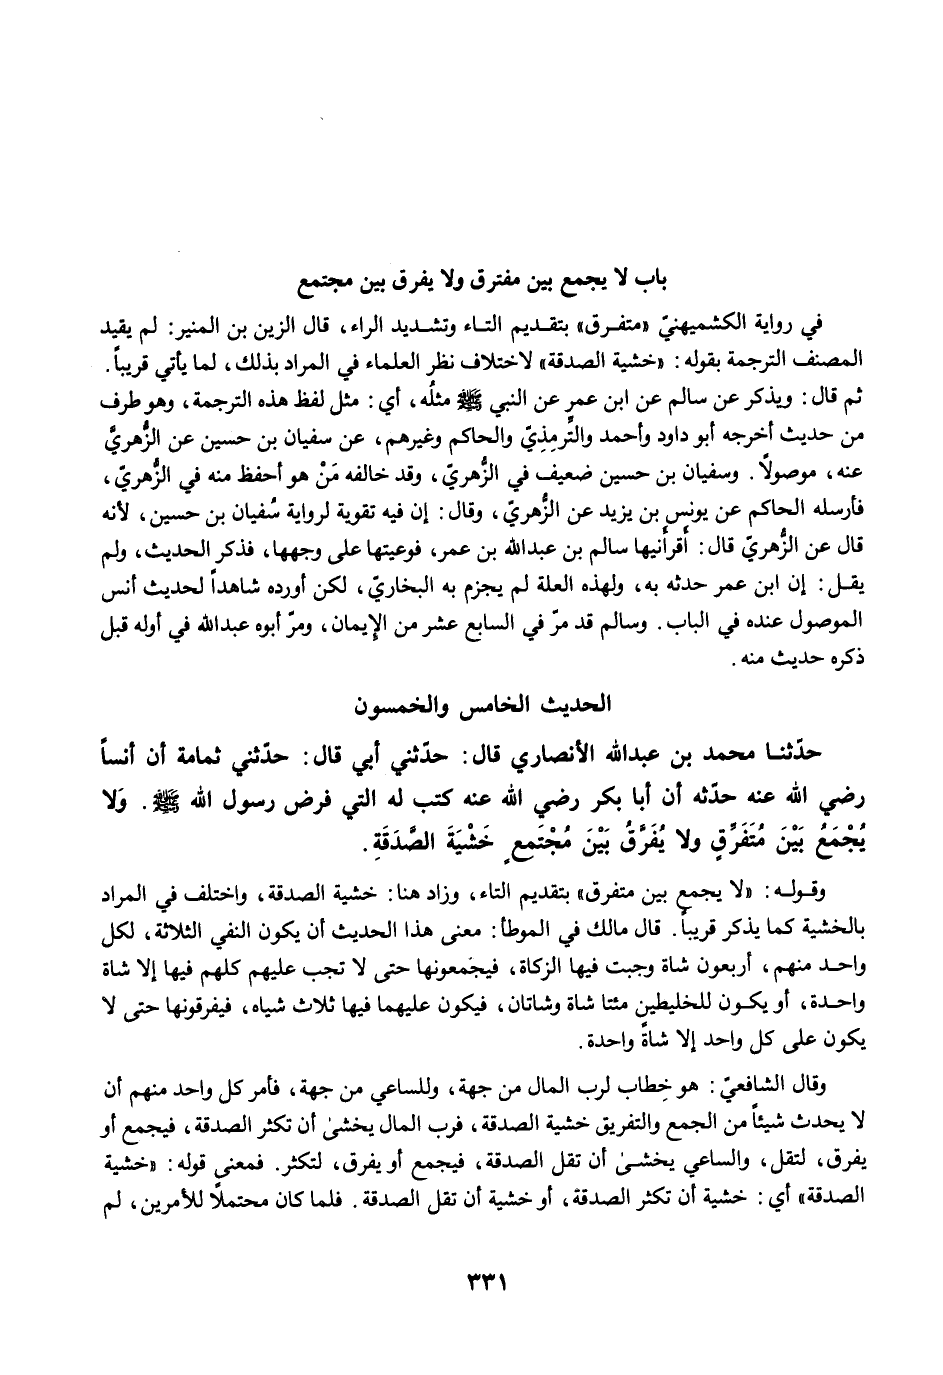 باب لا يجمع بين مفترق ولا يفرق بين مجتمع
في رواية الكشميهنيّ «متفرق» بتقديم التاء وتشديد الراء، قال الزين بن المنير: لم يقيد
المصنف الترجمة بقوله: «خشية الصدقة» لاختلاف نظر العلماء في المراد بذلك، لما يأتي قريباً.
ثم قال: ويذكر عن سالم عن ابن عمر عن النبي ﷺ مثلُه، أي: مثل لفظ هذه الترجمة، وهو طرف
من حديث أخرجه أبو داود وأحمد والتِّرمِذِيّ والحاكم وغيرهم، عن سفيان بن حسين عن الزُّهريَّ
عنه، موصولاً. وسفيان بن حسين ضعيف في الزُّهريّ، وقد خالفه مَنْ هو أحفظ منه في الزُّهريّ،
فأرسله الحاكم عن يونس بن يزيد عن الزُّهريّ، وقال: إن فيه تقوية لرواية سُفيان بن حسين، لأنه
قال عن الزُّهريّ قال: أقرأنيها سالم بن عبدالله بن عمر، فوعيتها على وجهها، فذكر الحديث، ولم
يقل: إن ابن عمر حدثه به، ولهذه العلة لم يجزم به البخاريّ، لكن أورده شاهداً لحديث أنس
الموصول عنده في الباب. وسالم قد مرّ في السابع عشر من الإِيمان، ومرّ أبوه عبدالله في أوله قبل
ذكره حديث منه.
الحديث الخامس والخمسون
حدّثنا محمد بن عبدالله الأنصاري قال: حدّثني أبي قال: حدّثني ثمامة أن أنساً
رضي الله عنه حدّثه أن أبا بكر رضي الله عنه كتب له التي فرض رسول الله ﷺ. وَلا
يُجْمَعُ بَيْنَ مُتَفَرِّقٍ ولا يُفَرَّقُ بَيْنَ مُجْتَمعٍ خَشْيَةَ الصَّدَقَةِ.
وقوله: «لا يجمع بين متفرق» بتقديم التاء، وزاد هنا: خشية الصدقة، واختلف في المراد
بالخشية كما يذكر قريباً. قال مالك في الموطأ: معنى هذا الحديث أن يكون النفي الثلاثة، لكل
واحد منهم، أربعون شاة وجبت فيها الزكاة، فيجمعونها حتى لا تجب عليهم كلهم فيها إلا شاة
واحدة، أو يكون للخليطين مئتا شاة وشاتان، فيكون عليهما فيها ثلاث شياه، فيفرقونها حتى لا
يكون على كل واحد إلا شاةً واحدة.
وقال الشافعيّ: هو خِطاب لرب المال من جهة، وللساعي من جهة، فأمر كل واحد منهم أن
لا يحدث شيئاً من الجمع والتفريق خشية الصدقة، فرب المال يخشىٰ أن تكثر الصدقة، فيجمع أو
يفرق، لتقل، والساعي يخشىٰ أن تقل الصدقة، فيجمع أو يفرق، لتكثر. فمعنى قوله: «خشية
الصدقة» أي: خشية أن تكثر الصدقة، أو خشية أن تقل الصدقة. فلما كان محتملًا للأمرين، لم
٣٣١